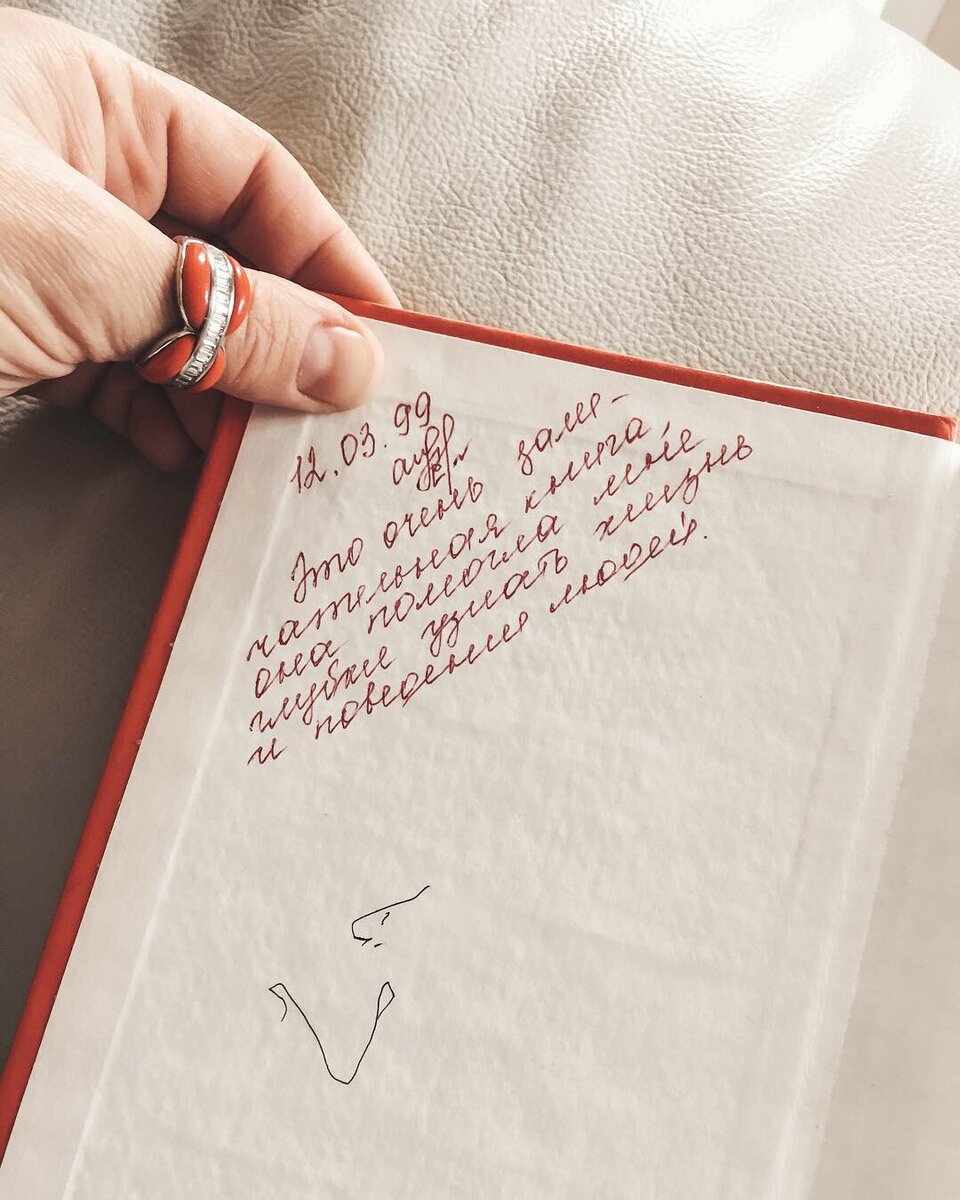 12.03.99
Это очень заме-
чательная книга,
она помогла мне
глубже узнать жизнь
и поведение людей.